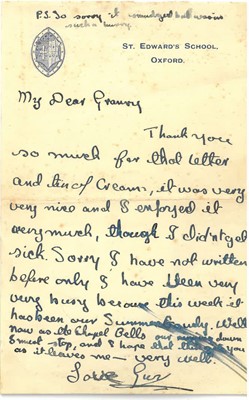 P.S. So sorry it smudged but was in
such a hurry
ST. EDWARD'S SCHOOL,
OXFORD.
My Dear Granny
Thank you
so much for that letter
and tin of Cream, it was very
very nice and I enjoyed it
very much, though I didn't get
sick. Sorry I have not written
before only I have been very
very busy because this week it
has been our Summer. Well
now as the Chapel Bells our down
I must stop, and I hope that you
as it leaves me — very well.
Love Guy